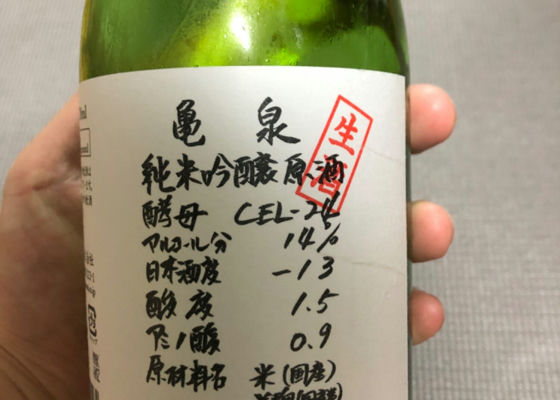 亀泉
生酒
純米吟醸原酒
酵母 CEL-24
アルコール分 14%
日本酒度 -13
酸度 1.5
アミノ酸 0.9
原材料名 米(国産)